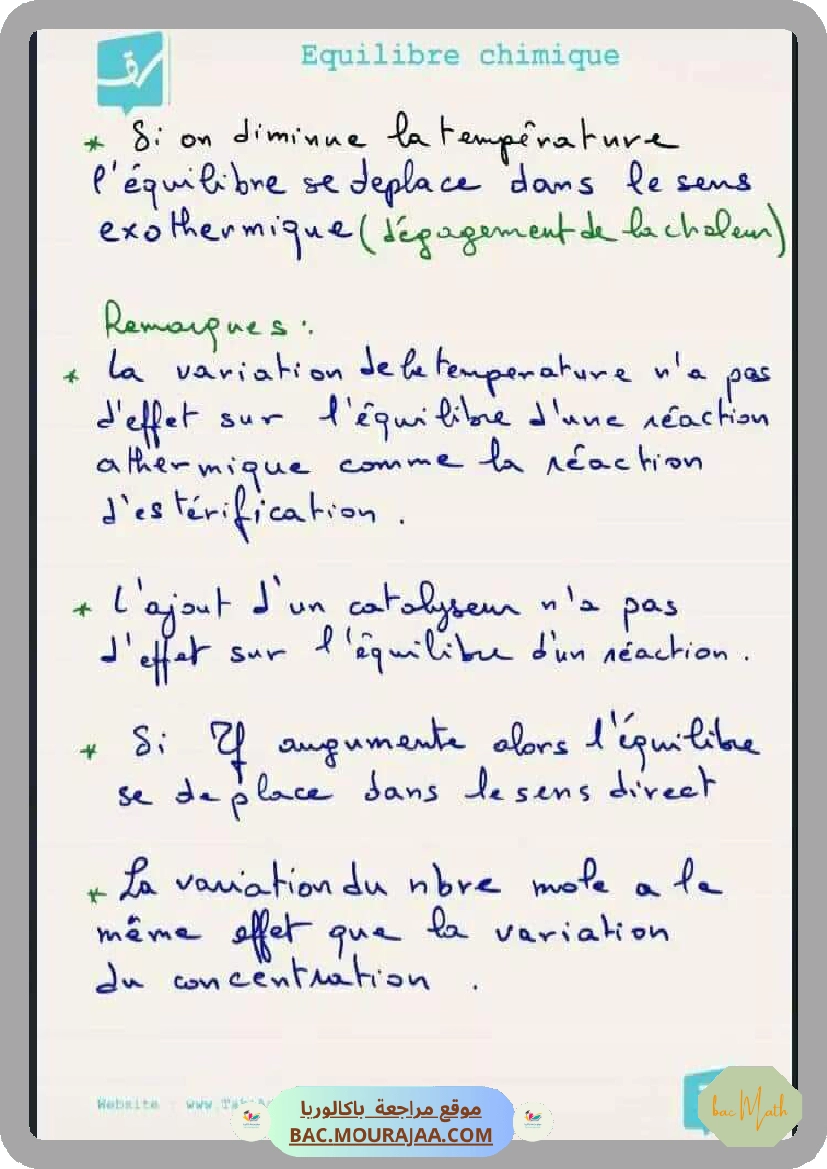 Equilibre chimique
* Si on diminue la température
l'équilibre se deplace dans le sens
exothermique (dégagement de la chaleur)
Remarques :
* La variation de la temperature n'a pas
d'effet sur l'équilibre d'une réaction
athermique comme la réaction
d'estérification .
* L'ajout d'un catalyseur n'a pas
d'effet sur l'équilibre d'un réaction .
* Si τf augumente alors l'équilibre
se deplace dans le sens direct
* La variation du nbre mole a le
même effet que la variation
du concentration .
Website : www.
موقع مراجعة باكالوريا
BAC.MOURAJAA.COM
bac Math